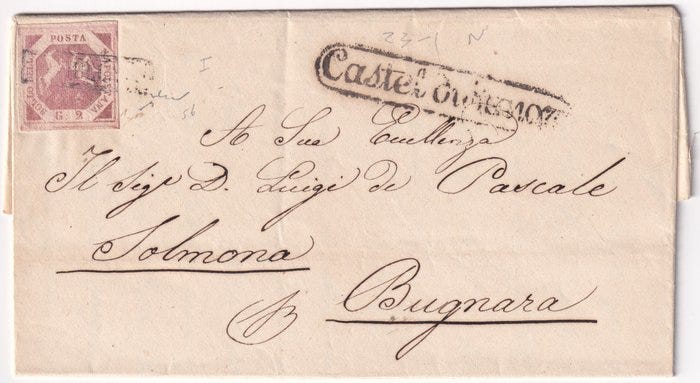 23-1 N
POSTA
NAPOLETANA
G. 2
BOLLO DELLA
I
56
Castel di
A Sua Eccellenza
Il Sigr D. Luigi de Pascale
Solmona
Bugnara